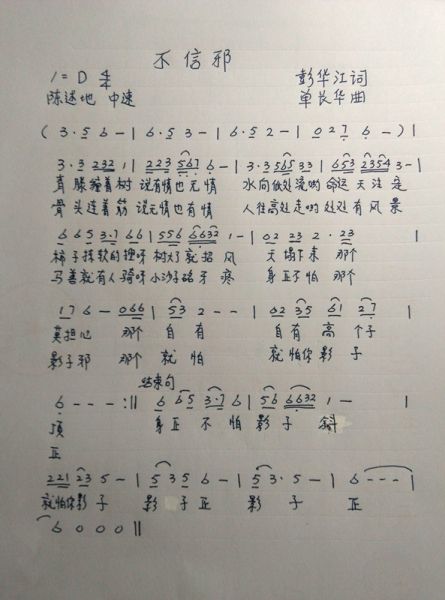 不信邪
1=D 4/4 彭华江词
陈述地 中速 单长华曲
( 3·5 6 - | 6·5 3 - | 6·5 2 - | 0 2 7 6 - ) |
3·3 232 1 | 223 567 6 - | 3·3 565 33 | 653 2354 3 - |
青藤撞着树 说有情也无情 水向低处流哟 命运天注定
骨头连着筋 说无情也有情 人往高处走哟 处处有风景
6 65 3·7 66 | 556 6632 1 - | 02 23 2·23 |
柿子择软的捏呀 树大了就招风 天塌下来 那个
马善就有人骑呀 小沙子硌牙疼 身正不怕 那个
176 - 066 | 53 2 - - | 02 35 61 27 |
莫担心 那个 自有 自有高个子
影子邪 那个 就怕 就怕你影子
结束句
6 - - - :|| 6 65 3·7 6 | 56 6632 1 - |
顶 身正不怕影子斜
正
221 23 5 - | 535 6 - | 53·5 - | 6 - - - |
就怕你影子 影子正 影子正
6 0 0 0 ||